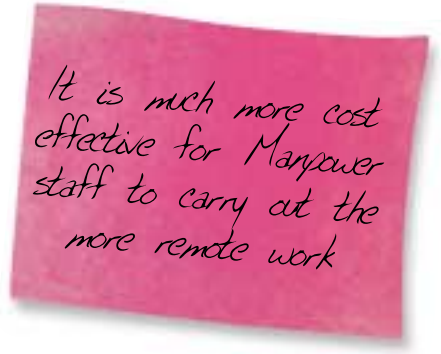 It is much more cost
effective for Manpower
staff to carry out the
more remote work